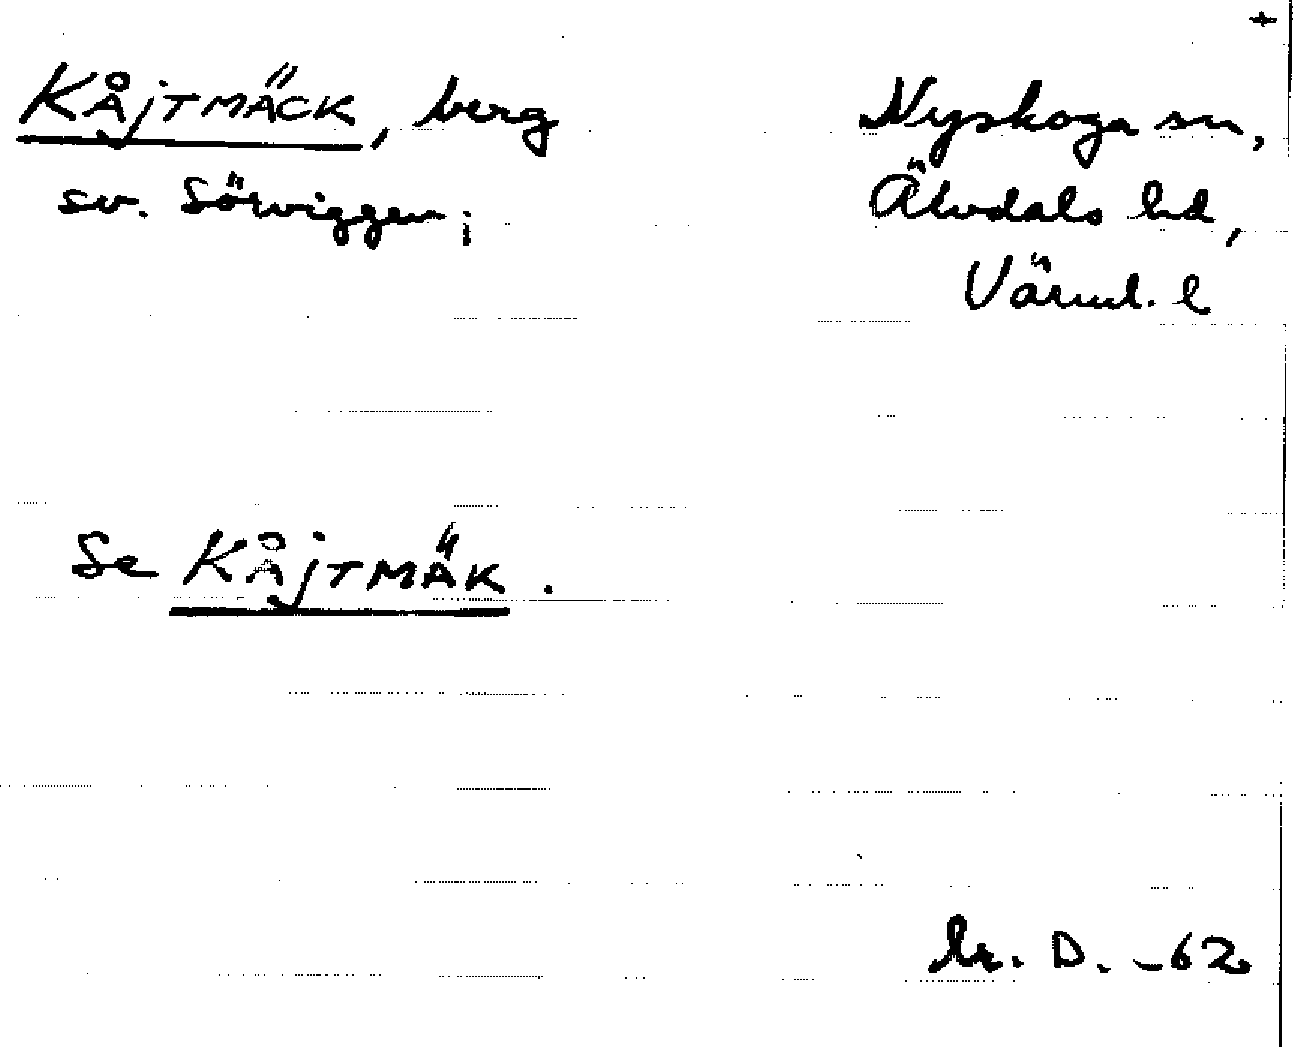 +
KÅJTMÄCK, berg
sv. Sörviggen;
Nyskoga sn,
Älvdals hd,
Värml. l
Se KÅJTMÄK.
lr. D. -62